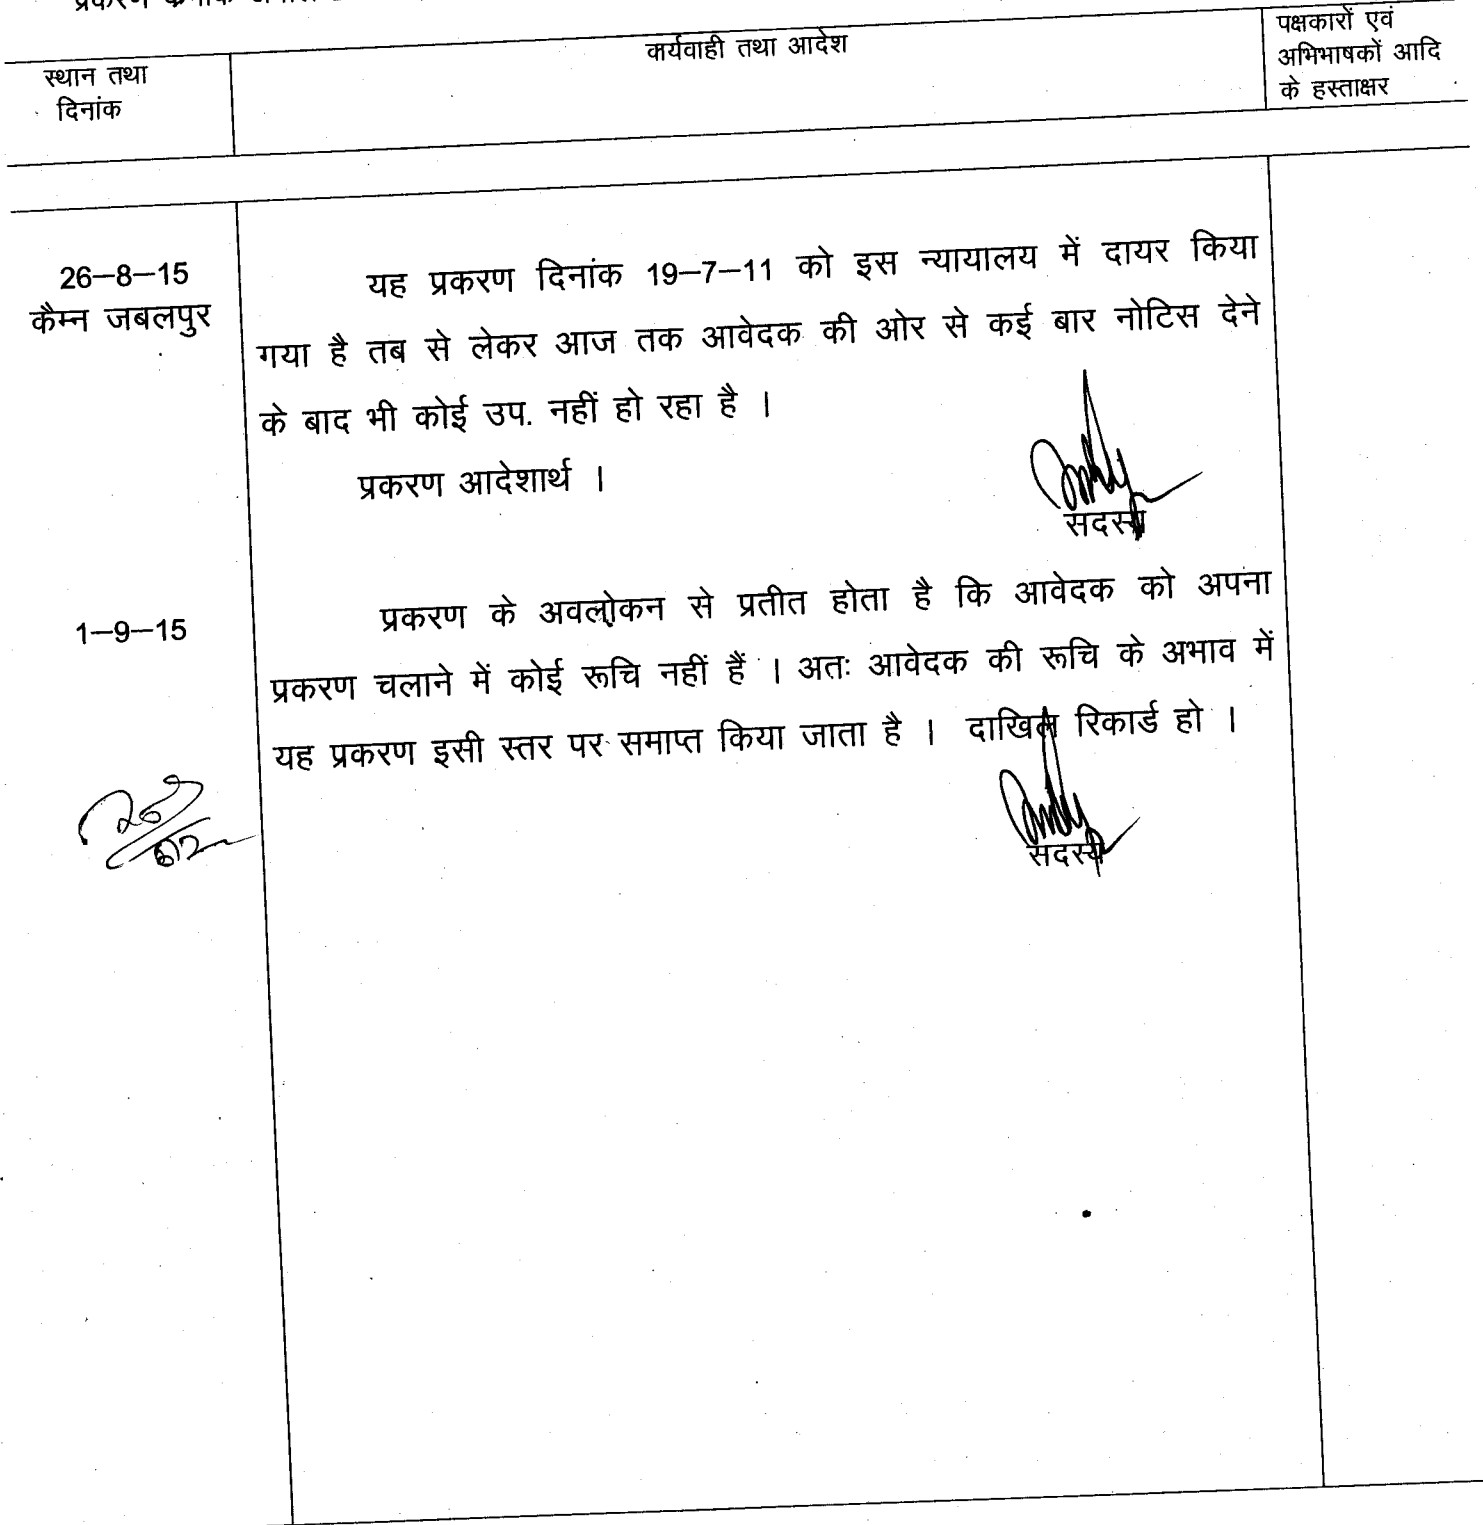 प्रकरण क्रमांक
स्थान तथा
दिनांक
कार्यवाही तथा आदेश
पक्षकारों एवं
अभिभाषकों आदि
के हस्ताक्षर
26–8–15
कैम्न जबलपुर
यह प्रकरण दिनांक 19–7–11 को इस न्यायालय में दायर किया
गया है तब से लेकर आज तक आवेदक की ओर से कई बार नोटिस देने
के बाद भी कोई उप. नहीं हो रहा है ।
प्रकरण आदेशार्थ ।
सदस्य
1–9–15
प्रकरण के अवलोकन से प्रतीत होता है कि आवेदक को अपना
प्रकरण चलाने में कोई रूचि नहीं हैं । अतः आवेदक की रूचि के अभाव में
यह प्रकरण इसी स्तर पर समाप्त किया जाता है । दाखिल रिकार्ड हो ।
सदस्य